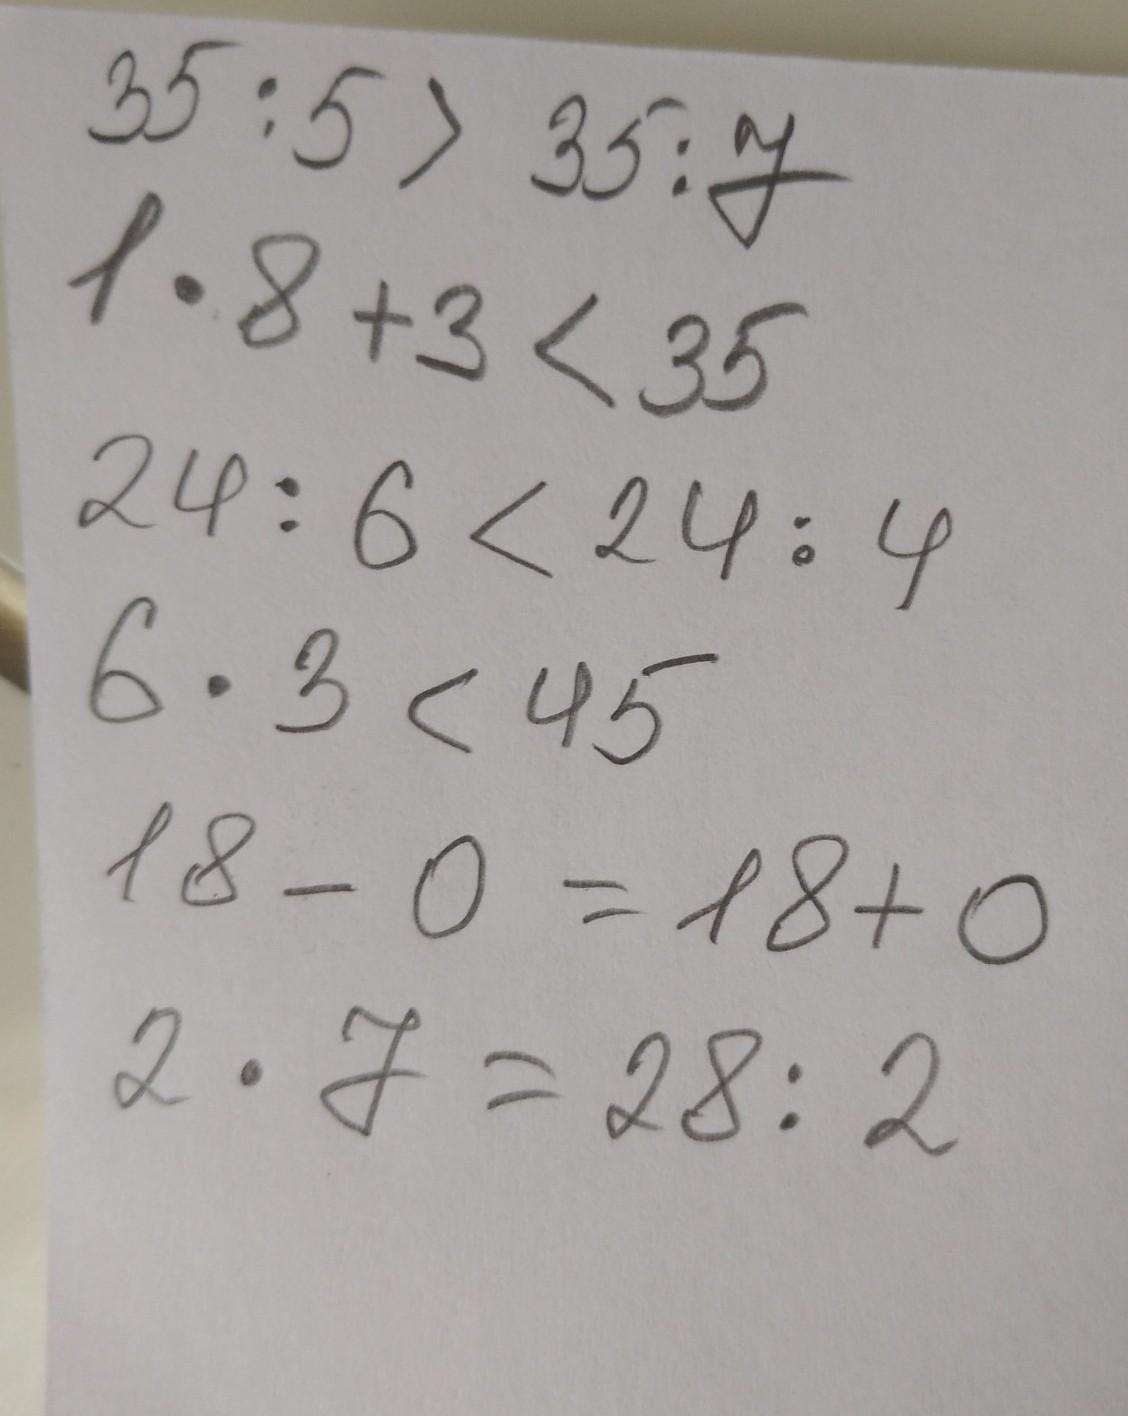 35:5 > 35:7
1·8+3 < 35
24:6 < 24:4
6·3 < 45
18-0 = 18+0
2·7 = 28:2